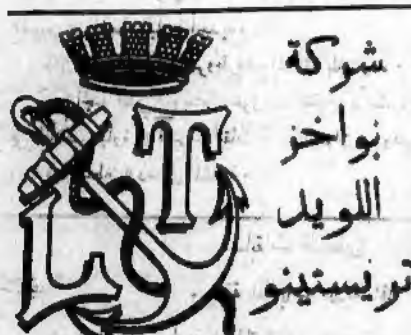 شركة
بواخر
اللويد
تريستينو
LT